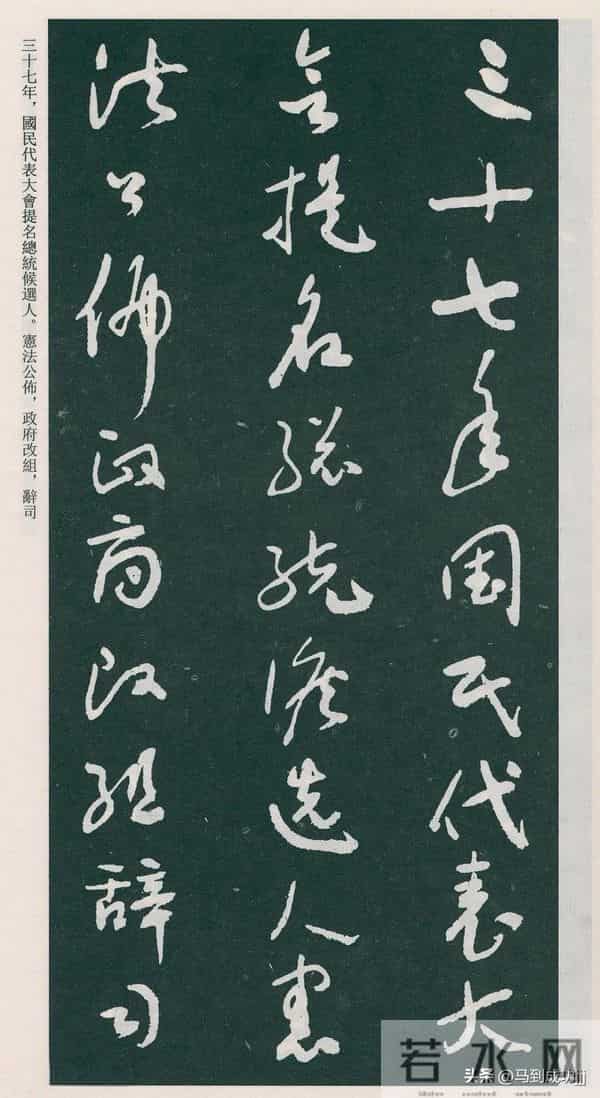 三十七年国民代表大
会提名總統候选人憲
法公佈政府改組辞司
三十七年，國民代表大會提名總統候選人。憲法公佈，政府改組，辭司
若水网
头条@马到成功jj